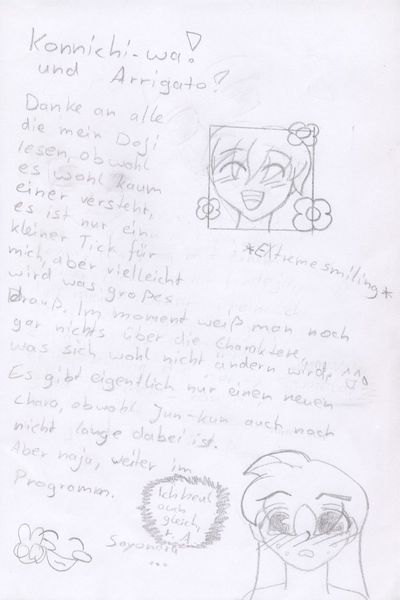 Konnichi-wa!
und Arrigato!
Danke an alle
die mein Doji
lesen, obwohl
es wohl kaum
einer versteht,
es ist nur ein
kleiner Tick für
mich, aber vielleicht
wird was großes
drauß. Im moment weiß man noch
gar nichts über die Charaktere,
was sich wohl nicht ändern wird. ^^°
Es gibt eigentlich nur einen neuen
charo, obwohl Jun-kun auch noch
nicht lange dabei ist.
Aber naja, weiter im
Programm.
*Extremesmiling*
Ich heul
auch
gleich,
Sayonora
...